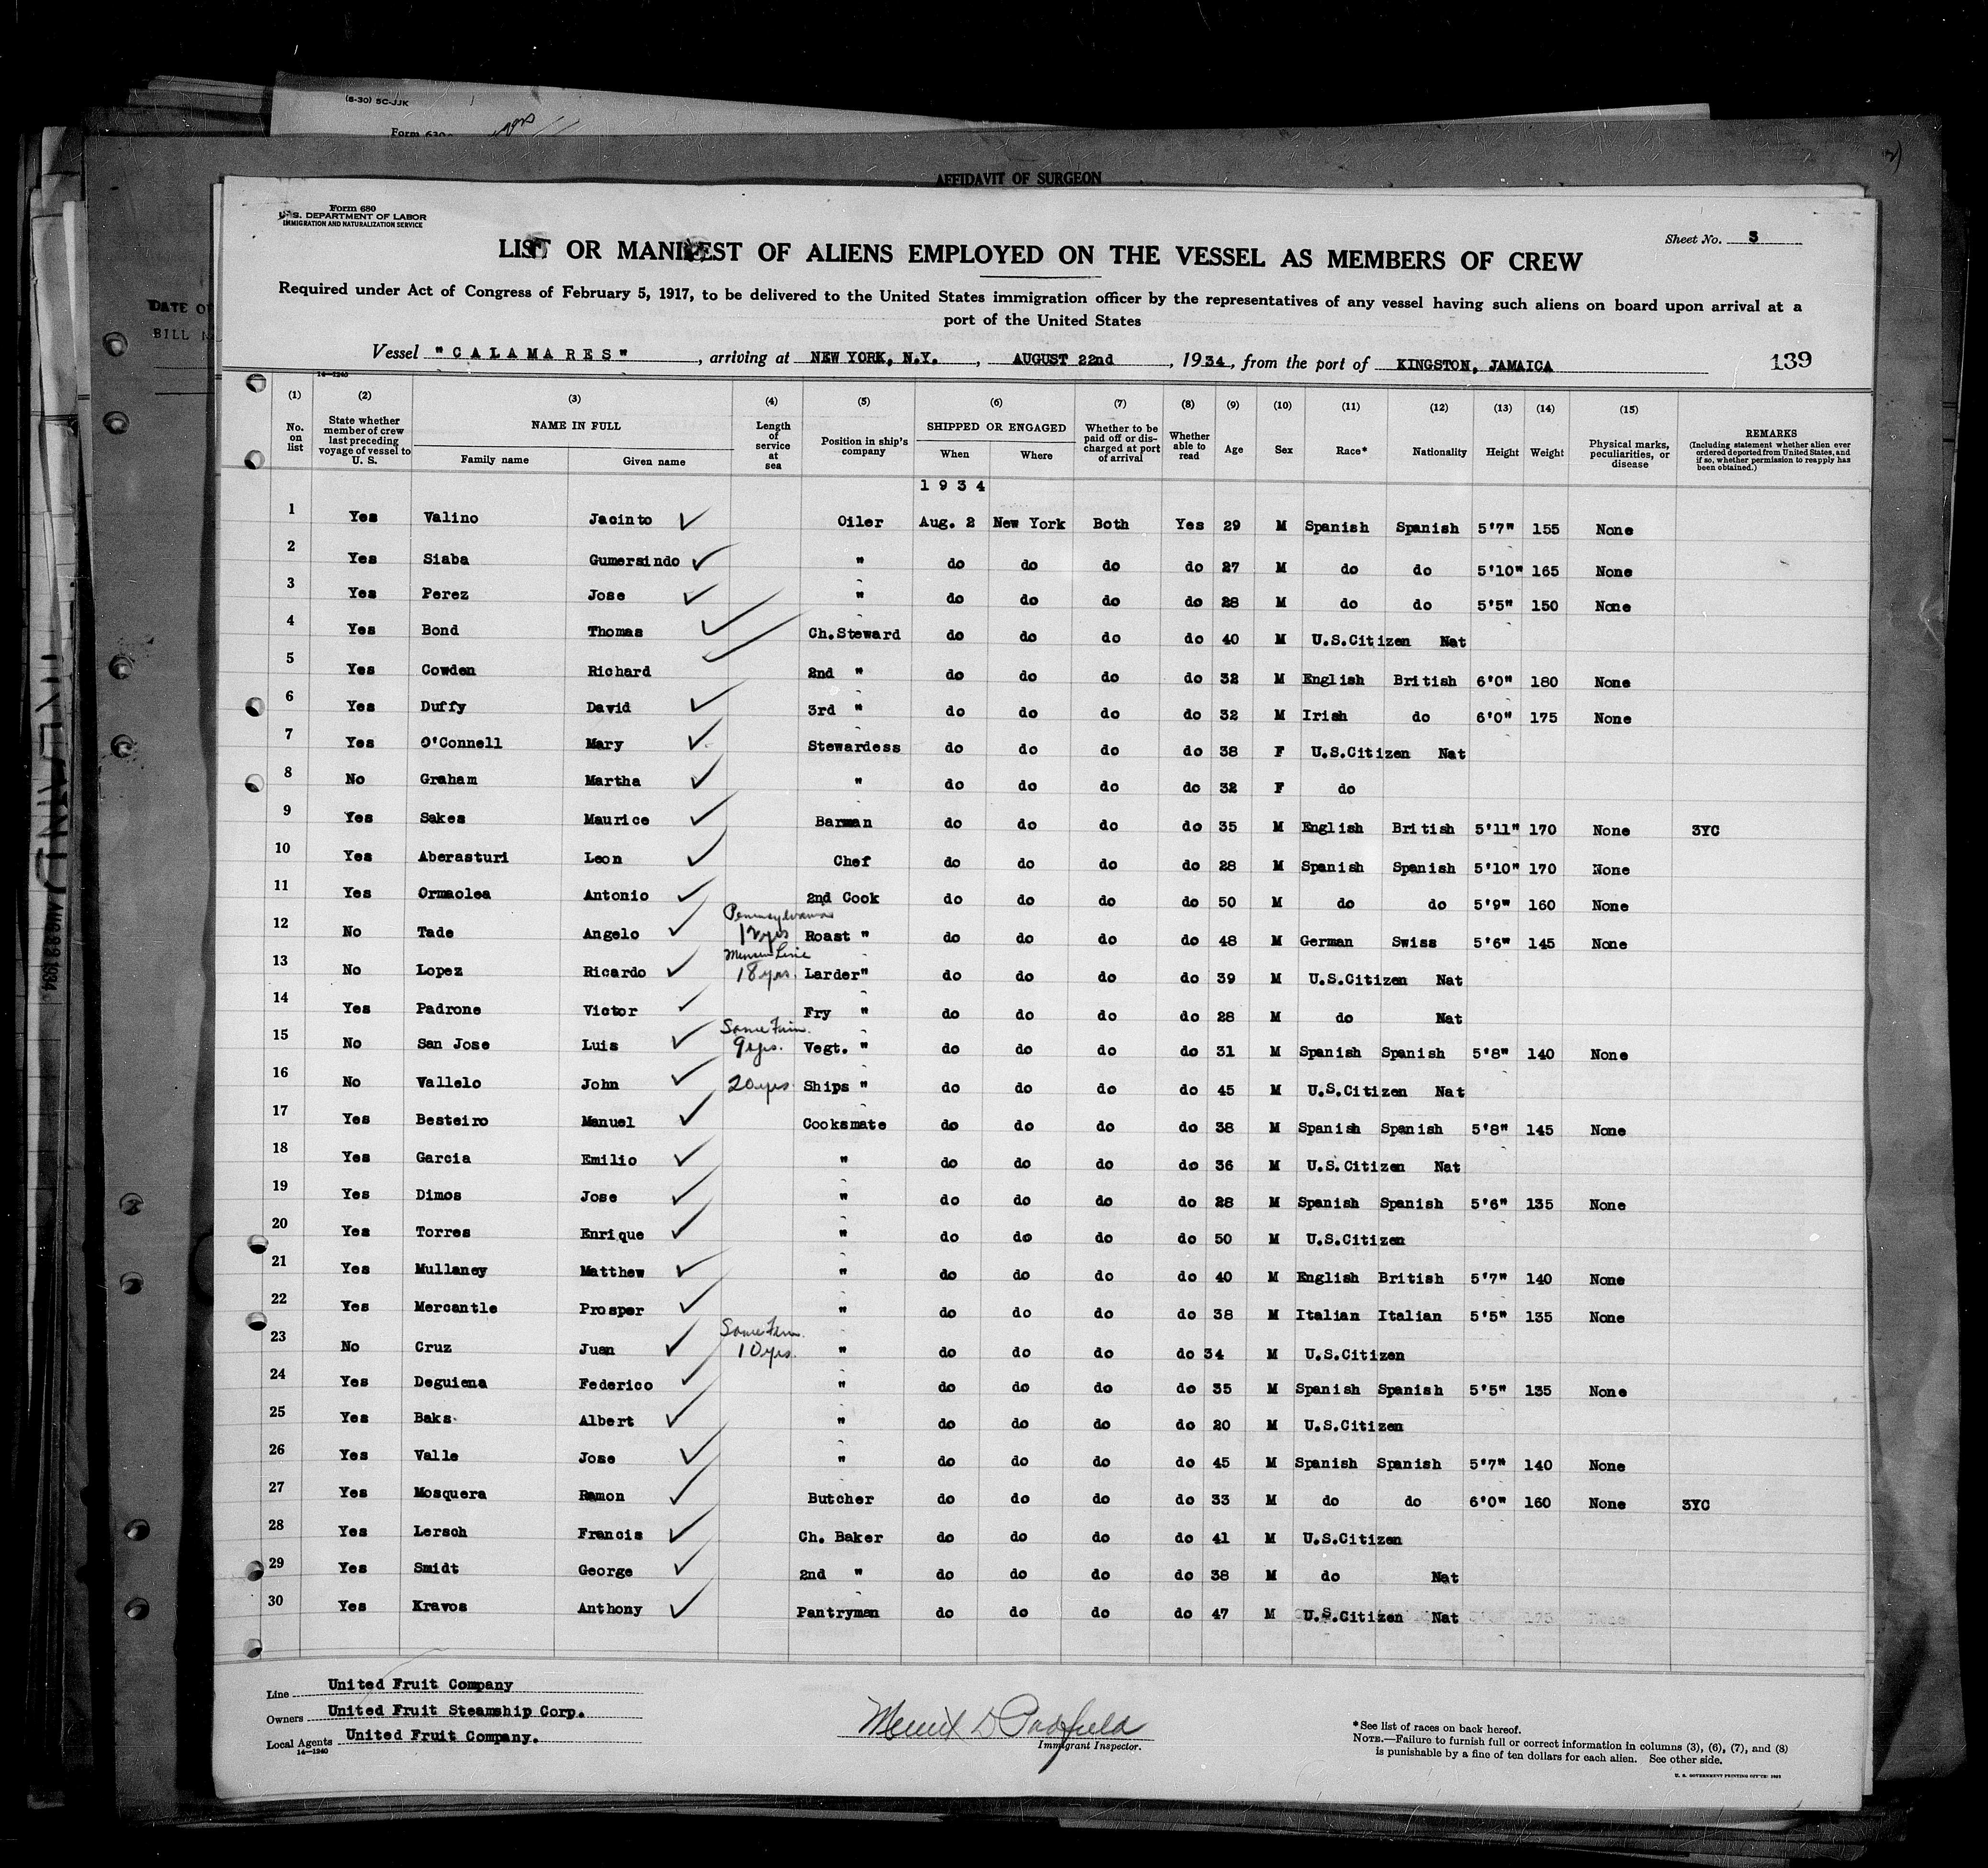 (8-30) 5C-JJK
Form 630
AFFIDAVIT OF SURGEON
DATE OF
BILL
Form 680
U. S. DEPARTMENT OF LABOR
IMMIGRATION AND NATURALIZATION SERVICE
Sheet No. 3
LIST OR MANIFEST OF ALIENS EMPLOYED ON THE VESSEL AS MEMBERS OF CREW
Required under Act of Congress of February 5, 1917, to be delivered to the United States immigration officer by the representatives of any vessel having such aliens on board upon arrival at a
port of the United States
Vessel "CALAMARES", arriving at NEW YORK, N.Y., AUGUST 22nd, 1934, from the port of KINGSTON, JAMAICA 139
14—1240
(1) (2) (3) (4) (5) (6) (7) (8) (9) (10) (11) (12) (13) (14) (15)
No. on list State whether member of crew last preceding voyage of vessel to U. S. NAME IN FULL Family name Given name Length of service at sea Position in ship's company SHIPPED OR ENGAGED When Where Whether to be paid off or discharged at port of arrival Whether able to read Age Sex Race* Nationality Height Weight Physical marks, peculiarities, or disease REMARKS (Including statement whether alien ever ordered deported from United States, and if so, whether permission to reapply has been obtained.)
1934
1 Yes Valino Jacinto Oiler Aug. 2 New York Both Yes 29 M Spanish Spanish 5'7" 155 None
2 Yes Siaba Gumersindo " do do do do 27 M do do 5'10" 165 None
3 Yes Perez Jose " do do do do 28 M do do 5'5" 150 None
4 Yes Bond Thomas Ch.Steward do do do do 40 M U.S.Citizen Nat
5 Yes Cowden Richard 2nd " do do do do 32 M English British 6'0" 180 None
6 Yes Duffy David 3rd " do do do do 32 M Irish do 6'0" 175 None
7 Yes O'Connell Mary Stewardess do do do do 38 F U.S.Citizen Nat
8 No Graham Martha " do do do do 32 F do
9 Yes Sakes Maurice Barman do do do do 35 M English British 5'11" 170 None 3YC
10 Yes Aberasturi Leon Chef do do do do 28 M Spanish Spanish 5'10" 170 None
11 Yes Ormaolea Antonio 2nd Cook do do do do 50 M do do 5'9" 160 None
12 No Tade Angelo Pennsylvania 12yrs Roast " do do do do 48 M German Swiss 5'6" 145 None
13 No Lopez Ricardo Munson Line 18yrs. Larder" do do do do 39 M U.S.Citizen Nat
14 Yes Padrone Victor Fry " do do do do 28 M do Nat
15 No San Jose Luis Same Firm. 9yrs. Vegt. " do do do do 31 M Spanish Spanish 5'8" 140 None
16 No Vallelo John 20yrs. Ships " do do do do 45 M U.S.Citizen Nat
17 Yes Besteiro Manuel Cooksmate do do do do 38 M Spanish Spanish 5'8" 145 None
18 Yes Garcia Emilio " do do do do 36 M U.S.Citizen Nat
19 Yes Dimos Jose " do do do do 28 M Spanish Spanish 5'6" 135 None
20 Yes Torres Enrique " do do do do 50 M U.S.Citizen
21 Yes Mullaney Matthew " do do do do 40 M English British 5'7" 140 None
22 Yes Mercantle Prosper " do do do do 38 M Italian Italian 5'5" 135 None
23 No Cruz Juan Same Firm. 10yrs. " do do do do 34 M U.S.Citizen
24 Yes Deguiena Federico " do do do do 35 M Spanish Spanish 5'5" 135 None
25 Yes Baks Albert " do do do do 20 M U.S.Citizen
26 Yes Valle Jose " do do do do 45 M Spanish Spanish 5'7" 140 None
27 Yes Mosquera Ramon Butcher do do do do 33 M do do 6'0" 160 None 3YC
28 Yes Lersch Francis Ch. Baker do do do do 41 M U.S.Citizen
29 Yes Smidt George 2nd " do do do do 38 M do Nat
30 Yes Kravos Anthony Pantryman do do do do 47 M U.S.Citizen Nat
Line United Fruit Company
Owners United Fruit Steamship Corp.
Local Agents United Fruit Company.
14—1240
Merrit D Padfield
Immigrant Inspector.
*See list of races on back hereof.
NOTE.—Failure to furnish full or correct information in columns (3), (6), (7), and (8)
is punishable by a fine of ten dollars for each alien. See other side.
U. S. GOVERNMENT PRINTING OFFICE: